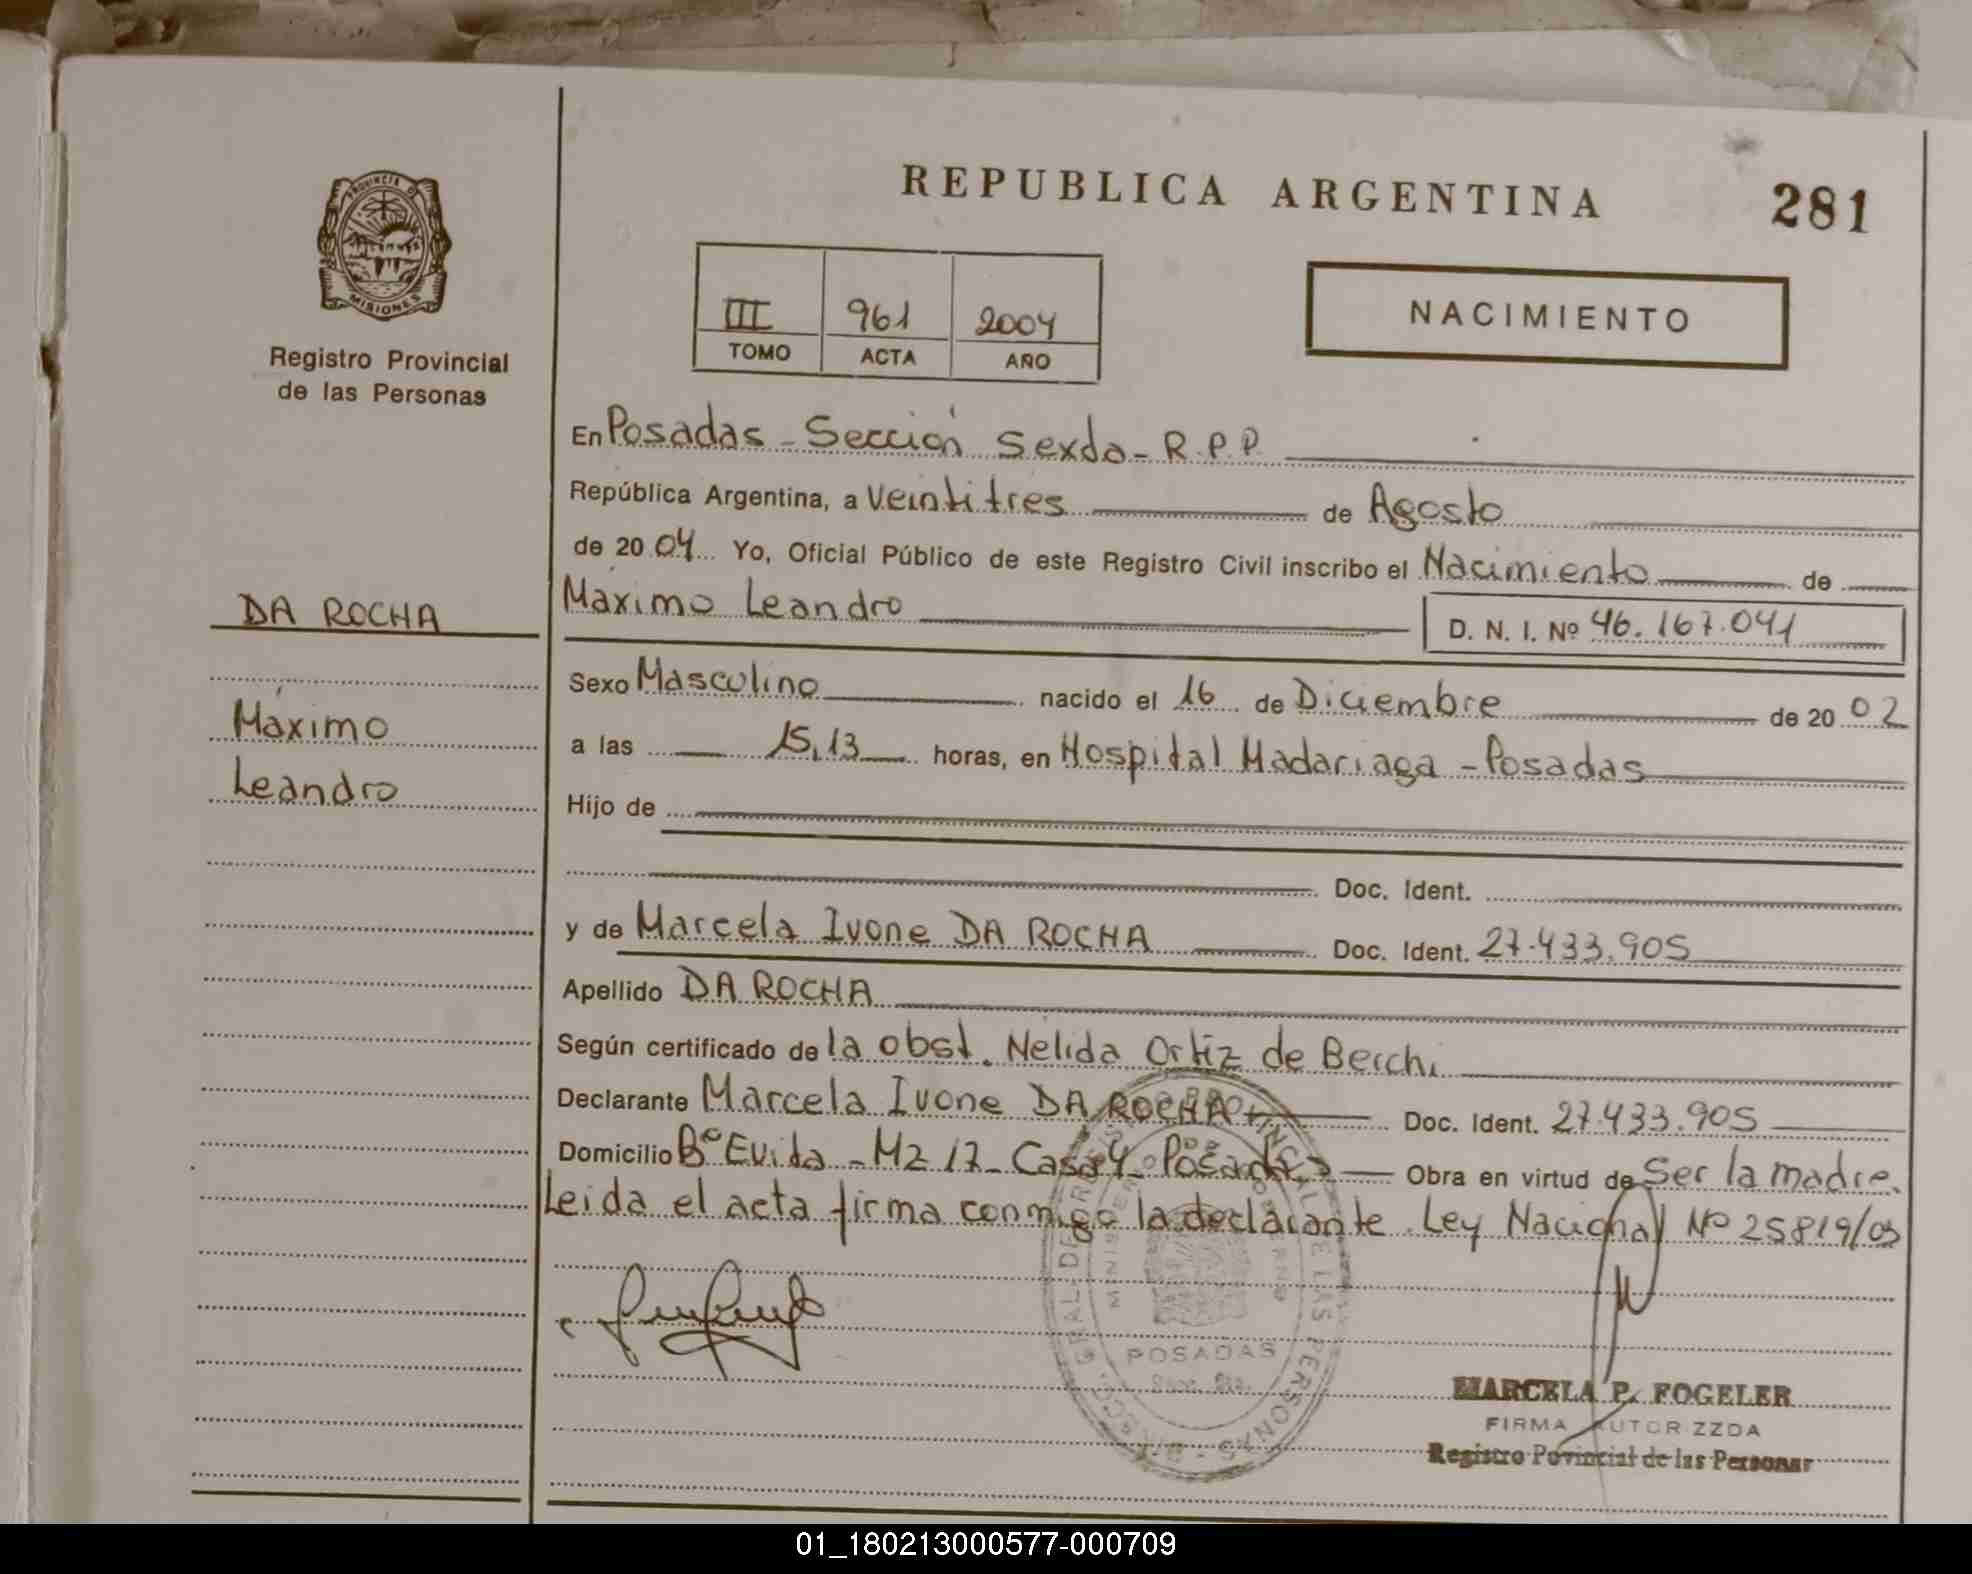 REPUBLICA ARGENTINA
281
PROVINCIA DE
MISIONES
Registro Provincial
de las Personas
III 961 2004
TOMO ACTA AÑO
NACIMIENTO
En Posadas - Sección Sexta - R.P.P.
República Argentina, a veintitres de Agosto
de 2004 Yo, Oficial Público de este Registro Civil inscribo el Nacimiento de
Máximo Leandro D. N. I. Nº 46.167.041
DA ROCHA
Máximo
Leandro
Sexo Masculino nacido el 16 de Diciembre de 2002
a las 15,13 horas, en Hospital Madariaga - Posadas
Hijo de
Doc. Ident.
y de Marcela Ivone DA ROCHA Doc. Ident. 27.433.905
Apellido DA ROCHA
Según certificado de la obst. Nélida Ortiz de Berchi
Declarante Marcela Ivone DA ROCHA Doc. Ident. 27.433.905
Domicilio Bº Evita - Mz 17 - Casa 4 - Posadas Obra en virtud de Ser la madre.
Leída el acta firma conmigo la declarante. Ley Nacional Nº 25819/03
POSADAS
MARCELA P. FOGELER
FIRMA AUTORIZZDA
Registro Povincial de las Personas
01_180213000577-000709